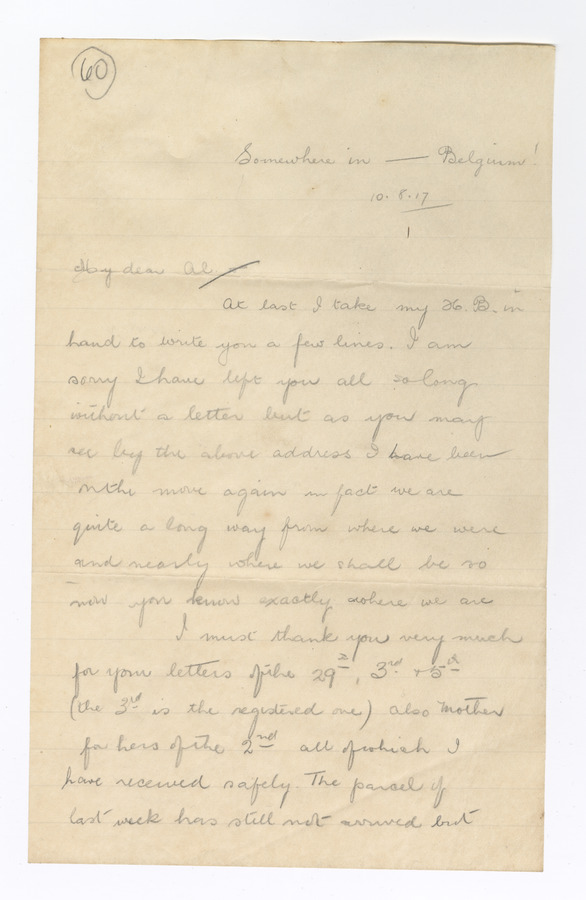 60
Somewhere in — Belgium!
10.8.17
1
My dear Al
At last I take my H.B. in
hand to write you a few lines. I am
sorry I have left you all so long
without a letter but as you may
see by the above address I have been
on the move again in fact we are
quite a long way from where we were
and nearly where we shall be so
now you know exactly where we are
I must thank you very much
for your letters of the 29th, 3rd + 5th
(the 3rd is the registered one) also Mother
for hers of the 2nd all of which I
have received safely. The parcel of
last week has still not arrived but